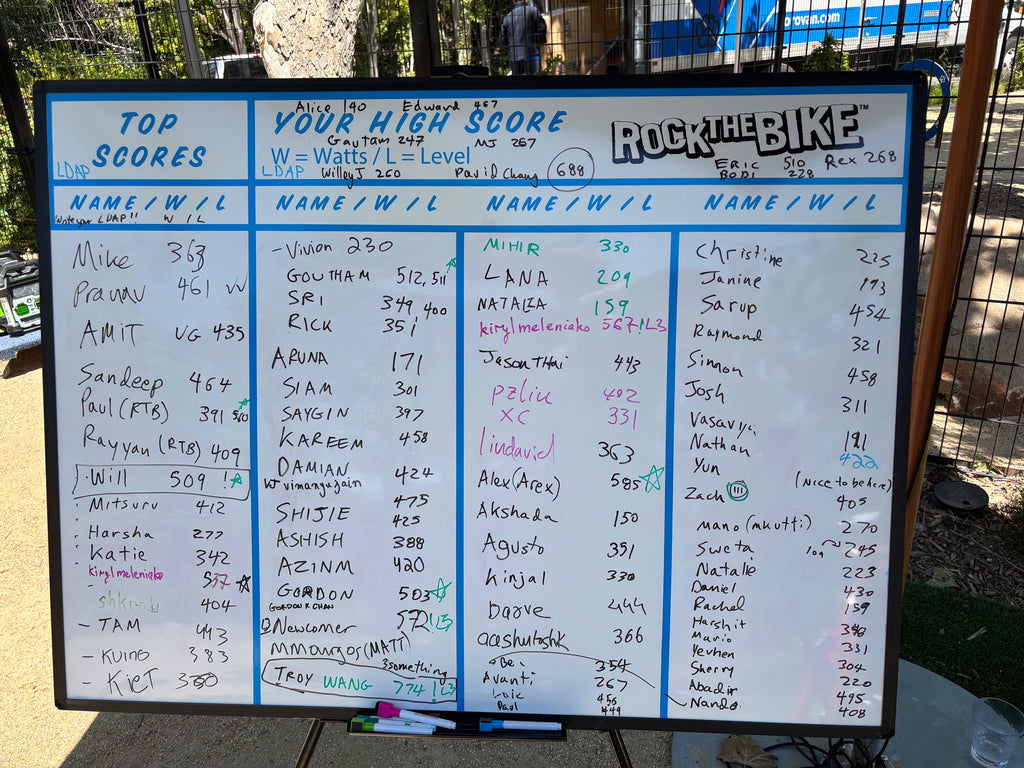 orovan.com
Alice 190 Edward 467
TOP SCORES
YOUR HIGH SCORE
ROCK THE BIKE™
Gautam 247 MJ 267
W = Watts / L = Level
LDAP
LDAP Willey J 260 David Chang 688
ERIC 510 Rex 268
BODI 228
NAME / W / L
Write your LDAP!! W / L
NAME / W / L
NAME / W / L
NAME / W / L
Mike 363
Pranav 461
AMIT UG 435
Sandeep 464
Paul (RTB) 391 560
Rayyan (RTB) 409
Will 509 !
Mitsuru 412
Harsha 277
Katie 342
kirylmeleniako 537
404
- TAM 443
- KUING 383
- KIET
- Vivian 230
GOUTHAM 512, 511
SRI 349, 400
RICK 351
ARUNA 171
SIAM 301
SAYGIN 397
KAREEM 458
DAMIAN 424
vimanyujain
SHIJIE 475
425
ASHISH 388
AZINM 420
GORDON 503
GORDON K CHAN
Newcomer 572 ! L3
mmangos (MATT)
3something
TROY WANG 774 ! L3
MIHIR 330
LANA 209
NATALIA 159
kirylmeleniako 567 ! L3
Jason Thai 443
pzliu 402
XC 331
lindavid 363
Alex (Arex) 585
Akshada 150
Agusto 351
Kinjal 330
barve 444
aashutoshk 366
Ben 354
Avanti 267
Loic 456
Paul 449
Christine 225
Janine 193
Sarup 454
Raymond 321
Simon 458
Josh 311
Vasaviya 191
Nathan 422
Yun (Nice to be here)
Zach 405
mano (mkutti) 270
Sweta 109 245
Natalie 223
Daniel 430
Rachel 159
Harshit 340
Mario 331
Yevhen 304
Sherry 220
Abadir 495
Nando 408